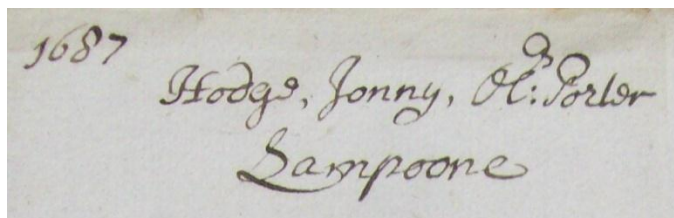 1687
Hodge, Jonny, Ol: Porter
Lampoone